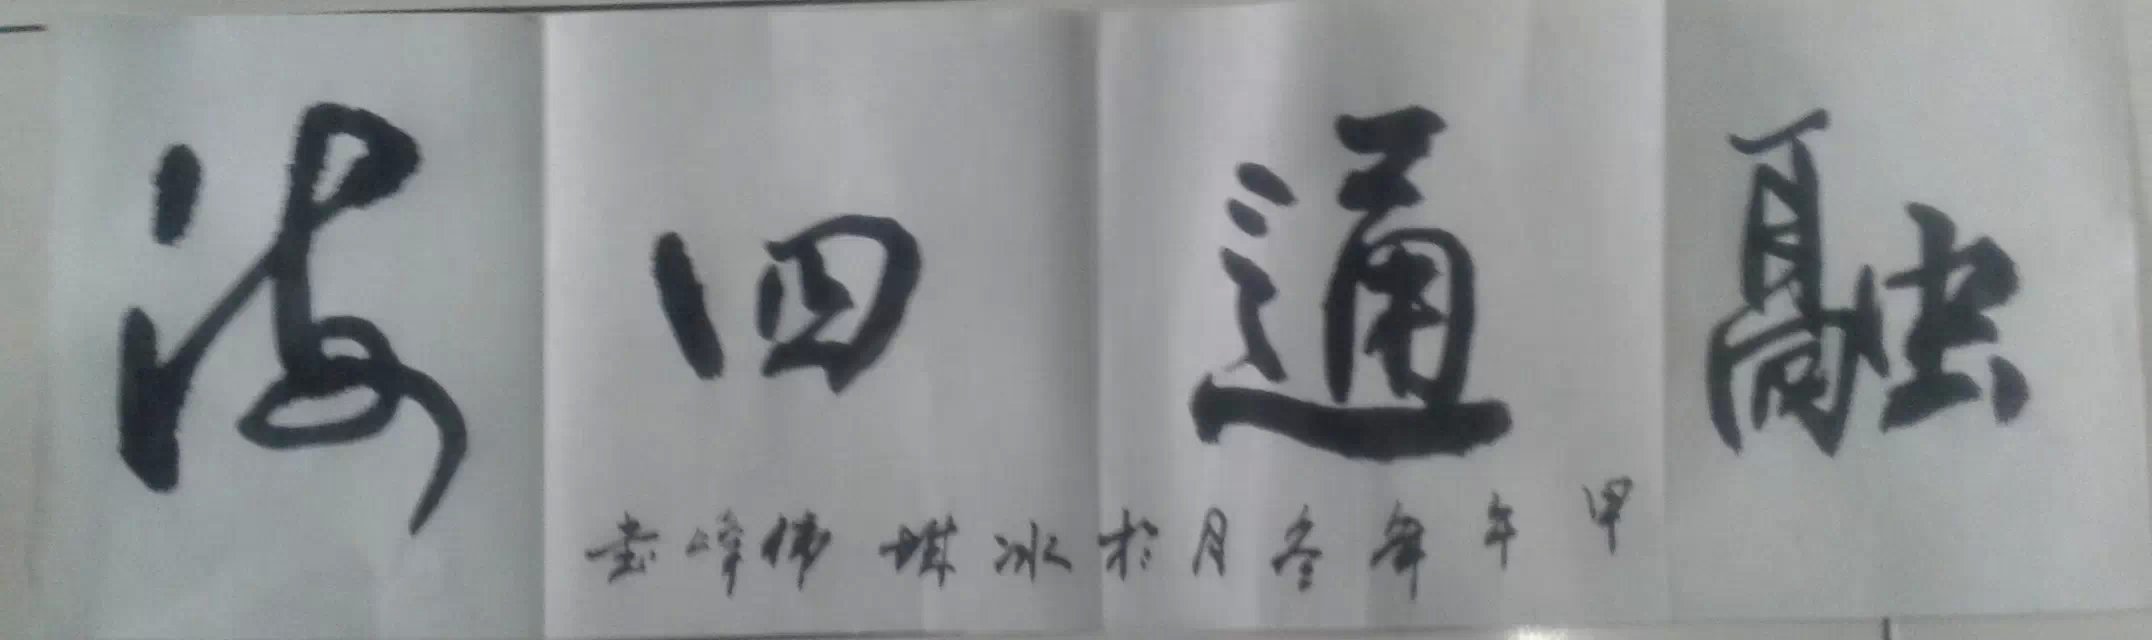 融通四海
甲午年冬月於冰城伟峰书